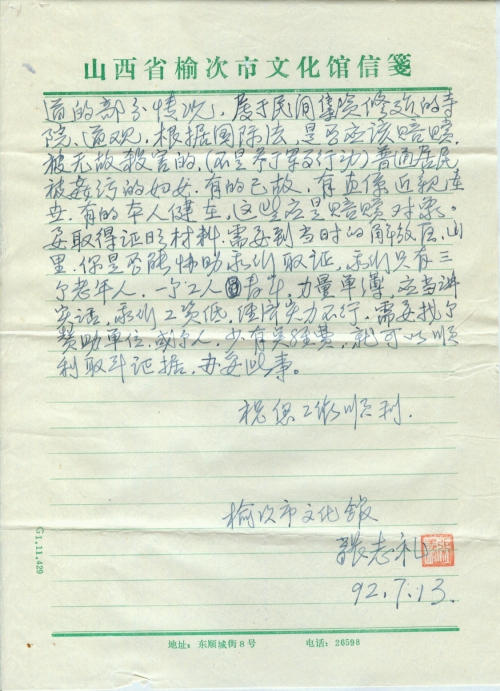 山西省榆次市文化馆信笺
道的部分情况」，属于民间集资修筑的寺
院、道观，根据国际法，是否应该赔赏，
被无故杀害的，（不是参于军事行动）普通居民
被奸污的妇女，有的已故，有直係近亲连
女，有的本人健在，这些应是赔赏对象。
要取得证明材料，需要到当时的解放区，山
里，你是否能协助我们取证，我们只有三
个老年人，一个工人青年，力量单薄，应当讲
实话，我们工资低，经济实力不行，需要找个
赞助单位，或个人，少有点经费，就可以顺
利取得证据，办妥此事。
祝您工作顺利。
榆次市文化馆
张志礼
92.7.13.
G1.11.429
地址：东顺城街8号 电话：26598